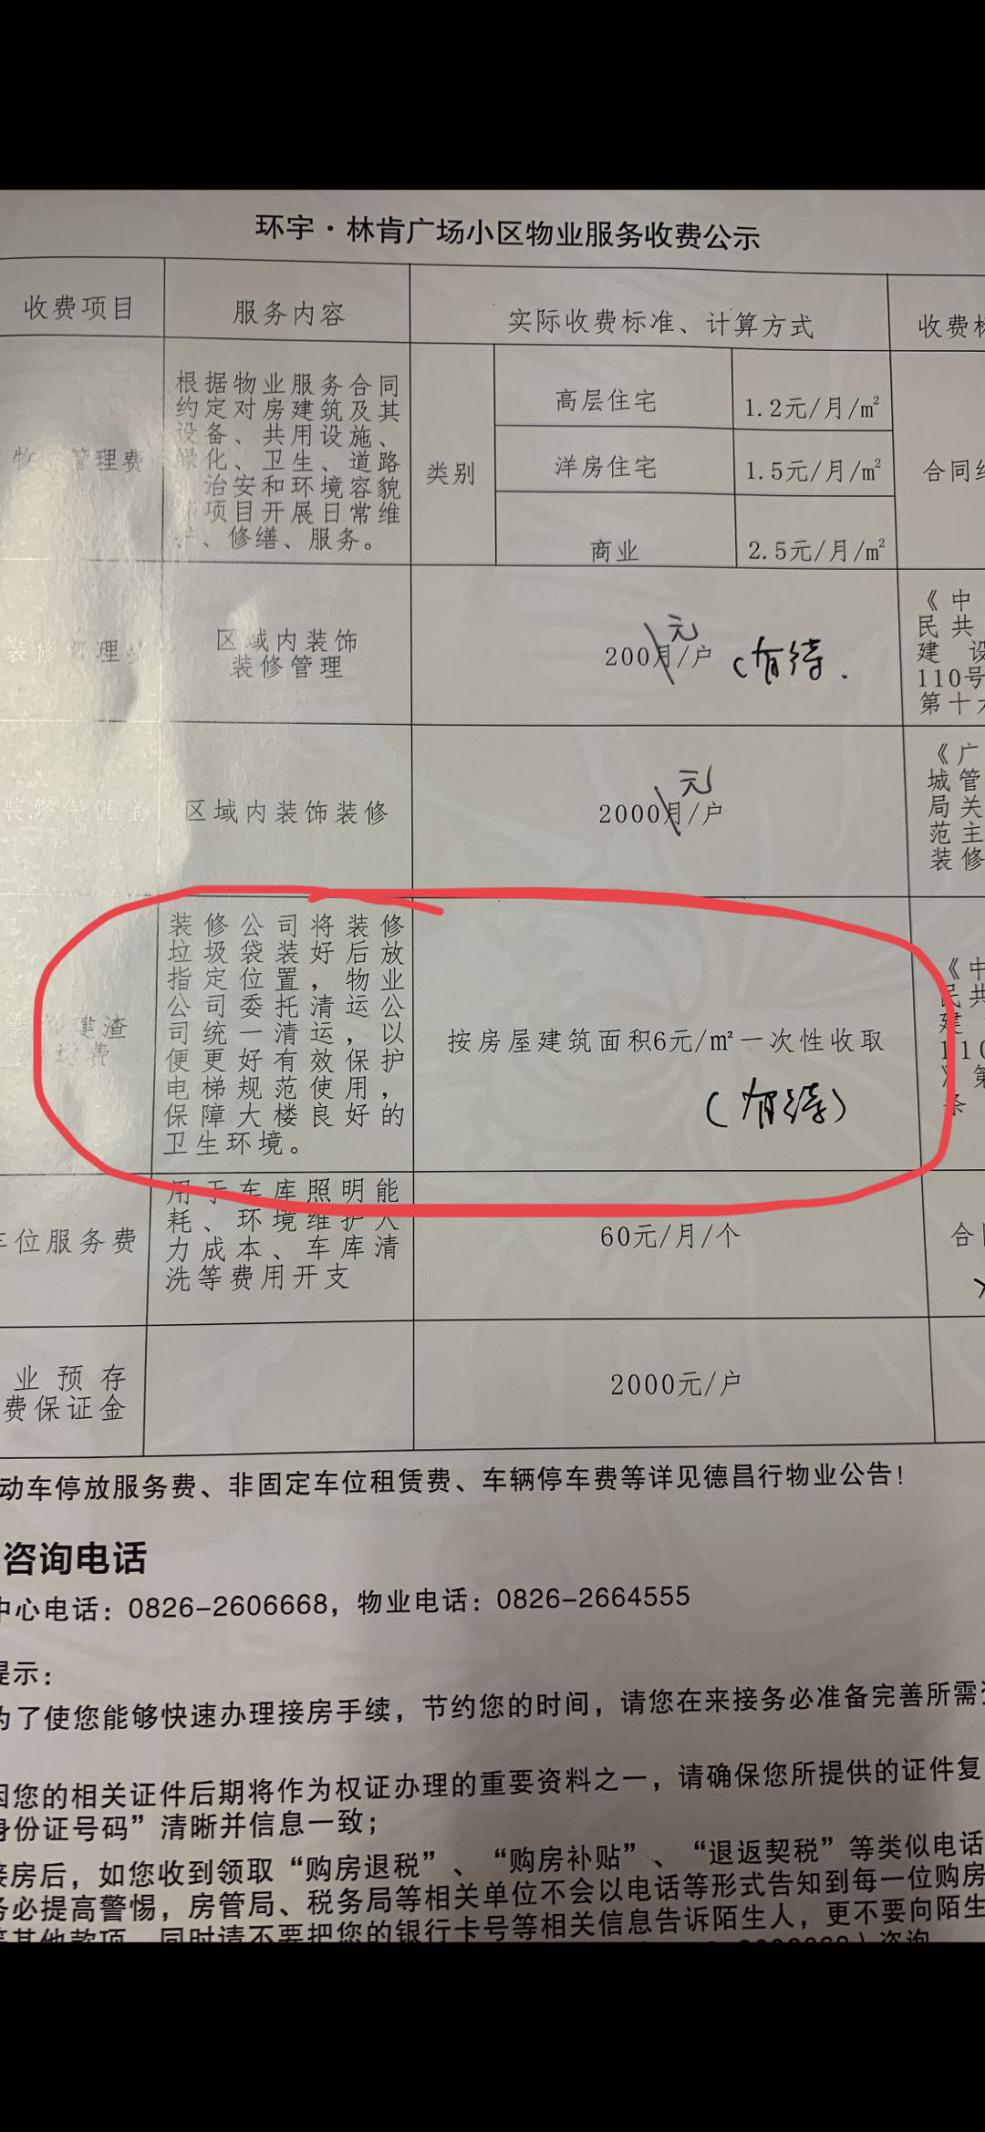 环宇·林肯广场小区物业服务收费公示
收费项目
服务内容
实际收费标准、计算方式
收费
管理费
根据物业服务合同
约定对房建筑及其
设备、共用设施、
绿化、卫生、道路
治安和环境容貌
项目开展日常维
、修缮、服务。
类别
高层住宅
1.2元/月/m²
洋房住宅
1.5元/月/m²
商业
2.5元/月/m²
合同
装修管理
区域内装饰
装修管理
元
200月/户
(有待.
《中
民共
建设
110号
第十
装修保证金
区域内装饰装修
元
2000月/户
《广
城管
局关
范主
装修
建渣
费
装修公司将装修
垃圾袋装好后放
指定位置，物业
公司委托清运公
司统一清运，以
便更好有效保护
电梯规范使用，
保障大楼良好的
卫生环境。
按房屋建筑面积6元/m²一次性收取
(有待)
《中
民共
建
110
》第
条
位服务费
用于车库照明能
耗、环境维护人
力成本、车库清
洗等费用开支
60元/月/个
合
业预存
费保证金
2000元/户
动车停放服务费、非固定车位租赁费、车辆停车费等详见德昌行物业公告！
咨询电话
中心电话：0826-2606668，物业电话：0826-2664555
提示：
为了使您能够快速办理接房手续，节约您的时间，请您在来接务必准备完善所需
因您的相关证件后期将作为权证办理的重要资料之一，请确保您所提供的证件复
身份证号码”清晰并信息一致；
接房后，如您收到领取“购房退税”、“购房补贴”、“退返契税”等类似电话
务必提高警惕，房管局、税务局等相关单位不会以电话等形式告知到每一位购房
等其他款项，同时请不要把您的银行卡号等相关信息告诉陌生人，更不要向陌生
咨询